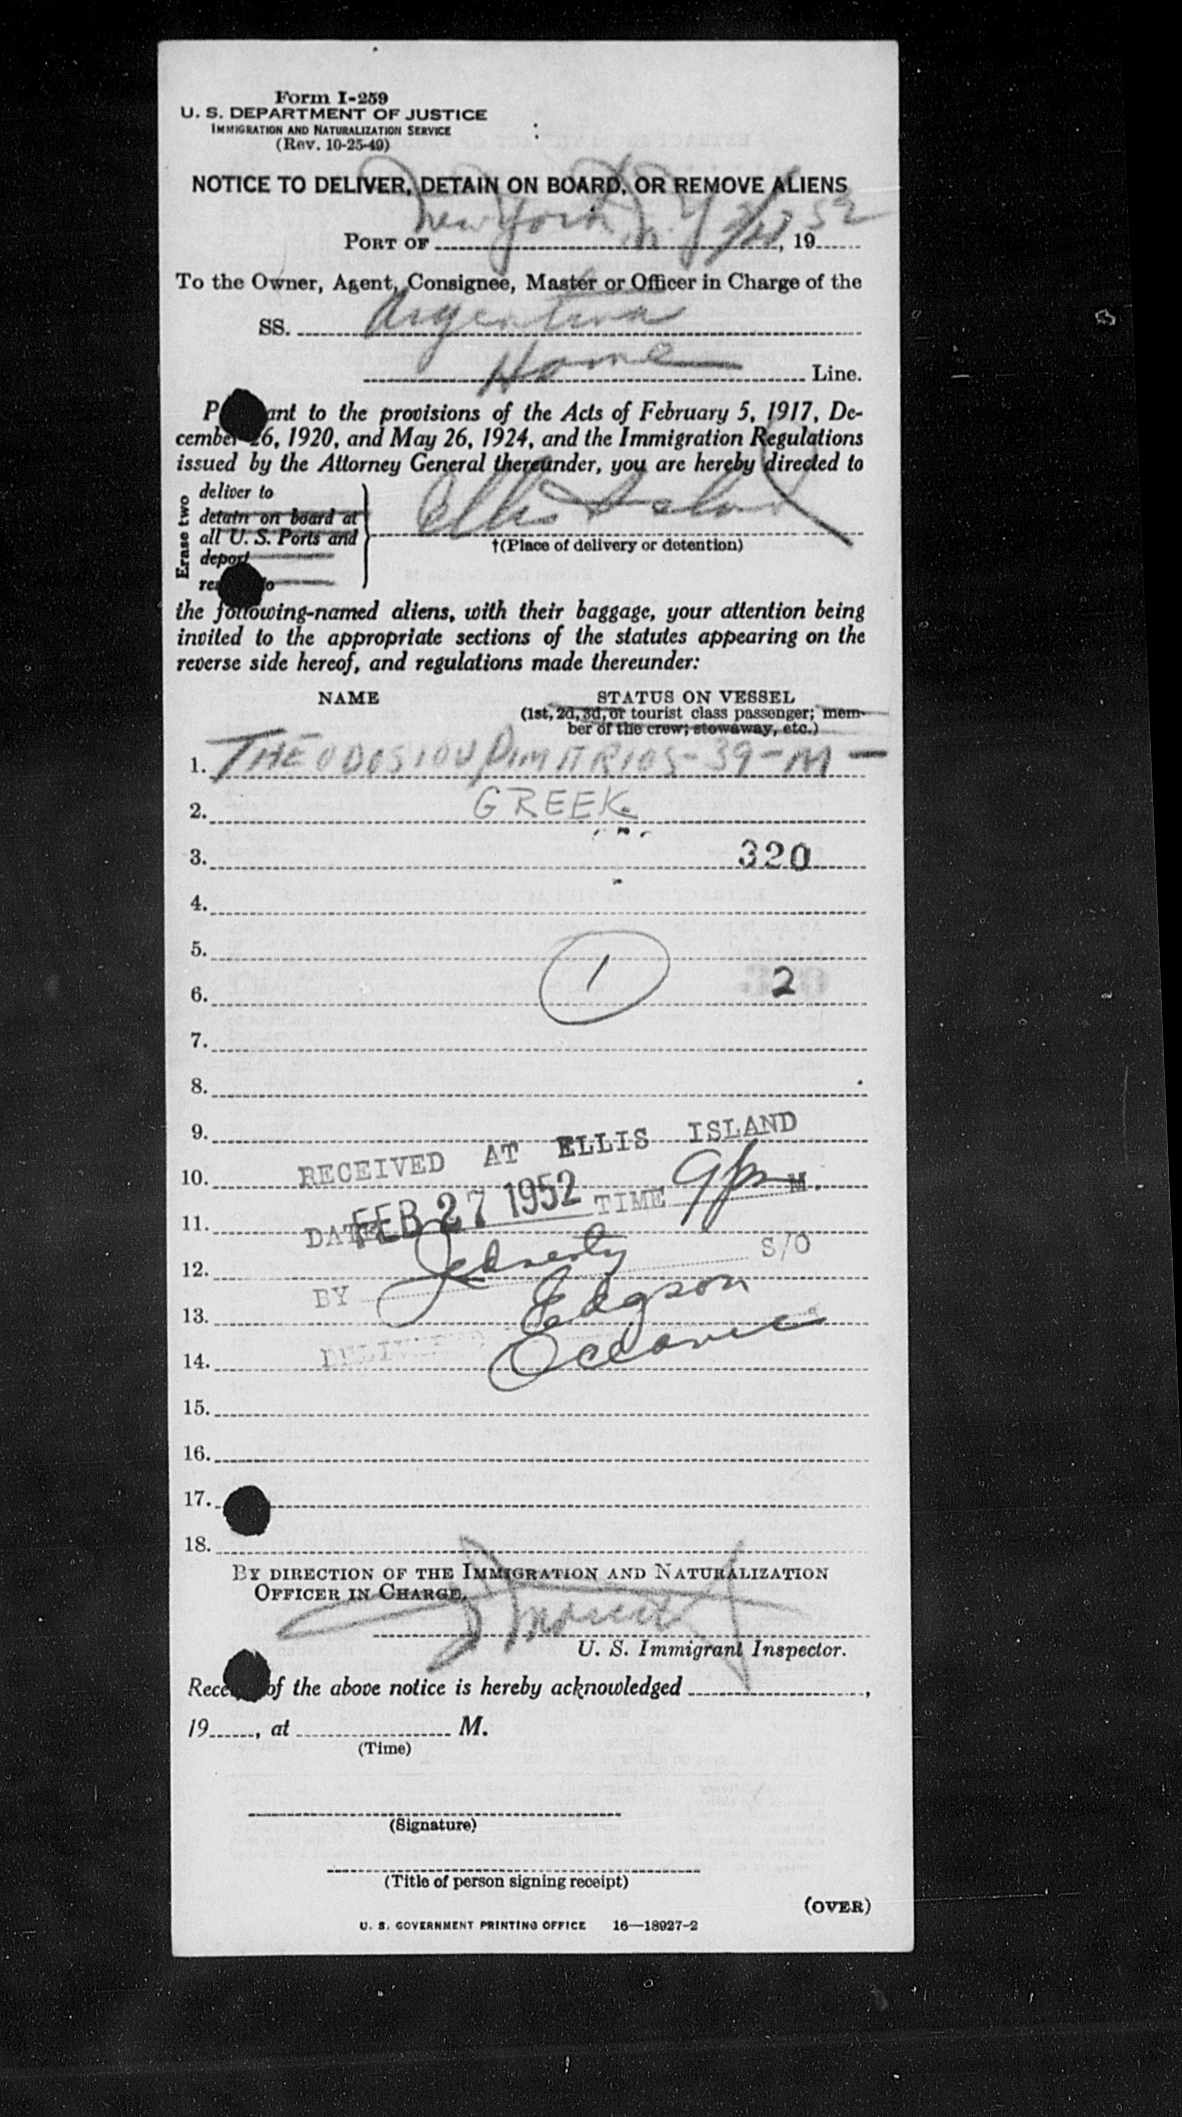 Form I-259
U. S. DEPARTMENT OF JUSTICE
IMMIGRATION AND NATURALIZATION SERVICE
(Rev. 10-25-49)
NOTICE TO DELIVER, DETAIN ON BOARD, OR REMOVE ALIENS
PORT OF New York, N.Y. 2/27, 1952
To the Owner, Agent, Consignee, Master or Officer in Charge of the
SS. Argentina
Home Line.
P ant to the provisions of the Acts of February 5, 1917, De-
cember 26, 1920, and May 26, 1924, and the Immigration Regulations
issued by the Attorney General thereunder, you are hereby directed to
Erase two
deliver to
detain on board at
all U. S. Ports and
deport
re to
Ellis Island
†(Place of delivery or detention)
the following-named aliens, with their baggage, your attention being
invited to the appropriate sections of the statutes appearing on the
reverse side hereof, and regulations made thereunder:
NAME STATUS ON VESSEL
(1st, 2d, 3d, or tourist class passenger; mem-
ber of the crew; stowaway, etc.)
1. THEODOSIOU, DIMITRIOS - 39 - M -
2. GREEK.
3. 320
4.
5.
6. 1 2
7.
8.
9.
10. RECEIVED AT ELLIS ISLAND
11. DATE FEB 27 1952 TIME 9 pm M.
12. BY S/O
13. Edgson
14. DELIVERED Oceanic
15.
16.
17.
18.
BY DIRECTION OF THE IMMIGRATION AND NATURALIZATION
OFFICER IN CHARGE,
U. S. Immigrant Inspector.
Rece of the above notice is hereby acknowledged ,
19 , at M.
(Time)
(Signature)
(Title of person signing receipt)
(OVER)
U. S. GOVERNMENT PRINTING OFFICE 16—18927-2